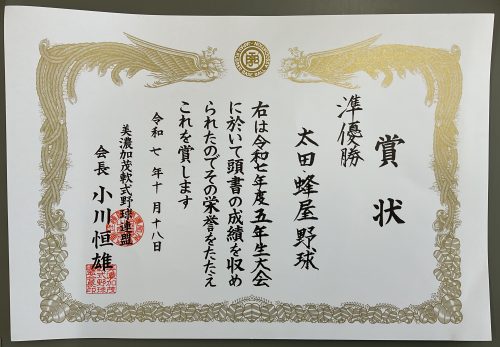 賞状
準優勝
太田・蜂屋野球
右は令和七年度五年生大会
に於いて頭書の成績を収め
られたのでその栄誉をたたえ
これを賞します
令和七年十月十八日
美濃加茂軟式野球連盟
会長 小川恒雄